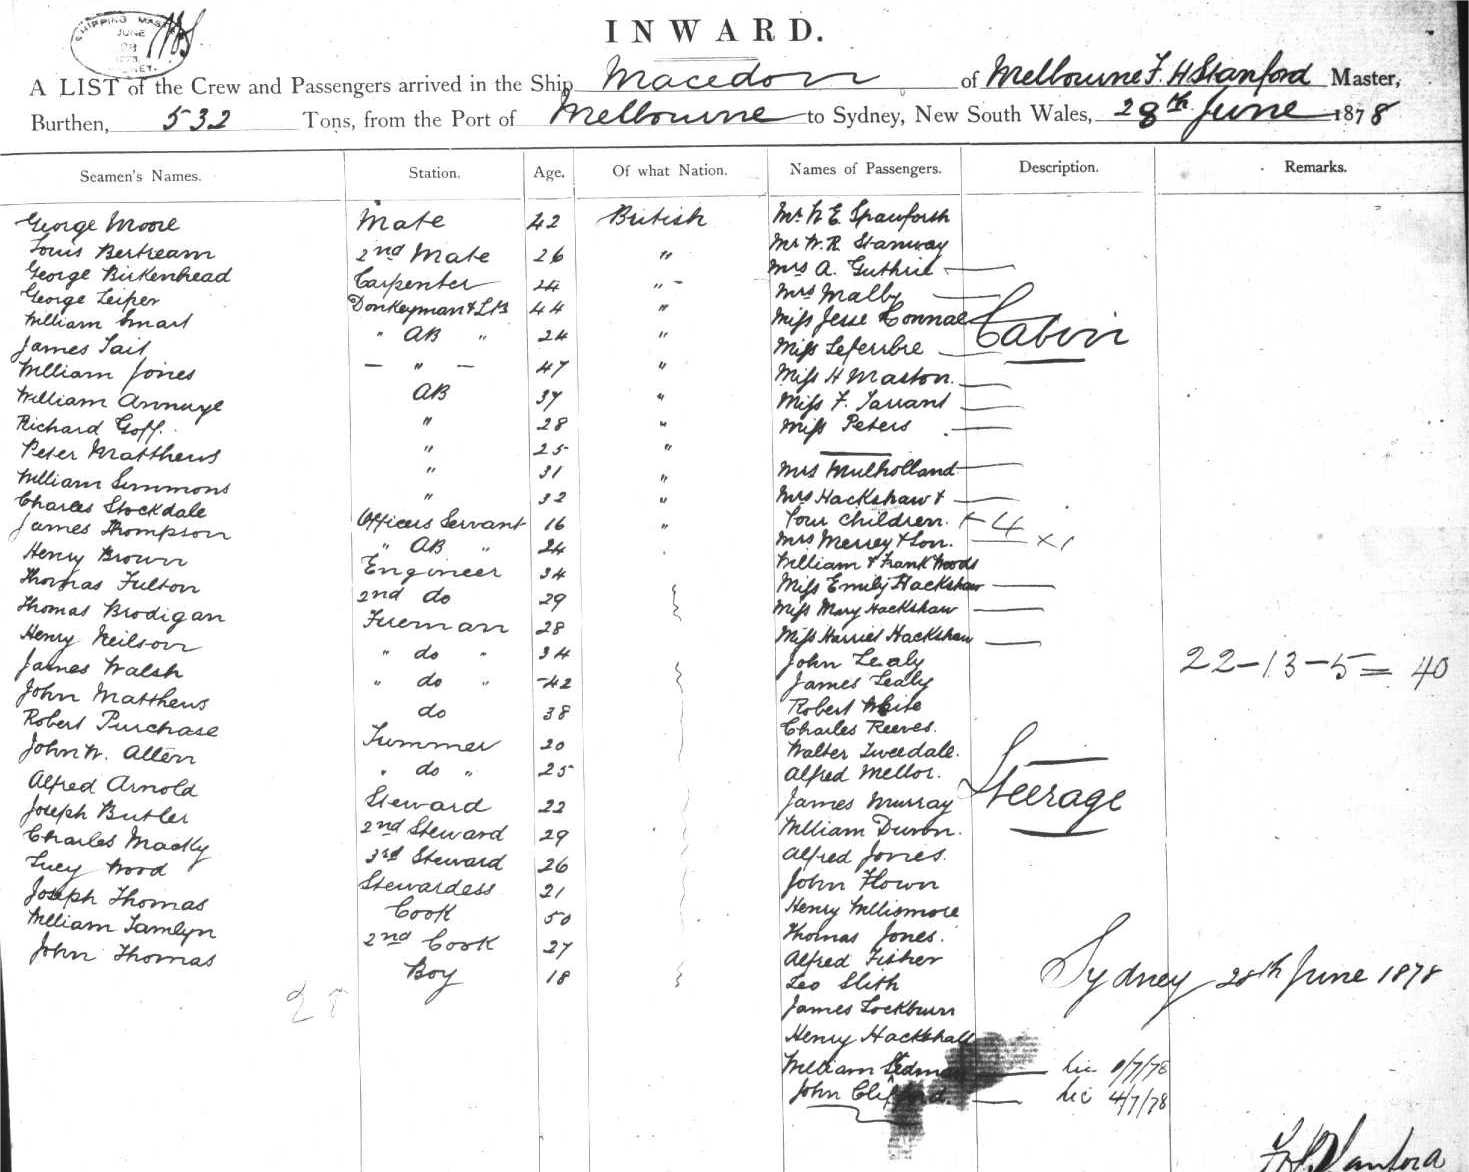 SHIPPING MASTER
JUNE
28
SYDNEY.
INWARD.
A LIST of the Crew and Passengers arrived in the Ship Macedon of Melbourne F. H Stanford Master,
Burthen, 532 Tons, from the Port of Melbourne to Sydney, New South Wales, 28th June 1878
Seamen's Names. Station. Age. Of what Nation. Names of Passengers. Description. Remarks.
George Moore Mate 42 British Mr W E Spawforth
Louis Bertream 2nd Mate 26 " Mr W. R Stanway
George Birkenhead Carpenter 24 " Mrs A. Guthrie
George Leiper Donkeyman & LB 44 " Mrs Malby
William Smart " AB " 24 " Miss Jesse Connae
Cabin
James Tait " 47 " Miss Lefeubre
William Jones AB 37 " Miss H Maston.
William Annuye " 28 " Miss F. Tarrant
Richard Goff. " 25 " Miss Peters
Peter Matthews " 31 " Mrs Mulholland
William Simmons " 32 " Mrs Hackshaw &
Charles Stockdale Officers Servant 16 " four children. + 4
James Thompson " AB " 24 Mrs Merrey & Son. x 1
Henry Brown Engineer 34 William & Frank Woods
Thomas Fulton 2nd do 29 Miss Emily Hackshaw
Thomas Brodigan Fireman 28 Miss Mary Hackshaw
Henry Neilson " do " 34 Miss Harriet Hackshaw
James Walsh " do " 42 John Lealy
22-13-5= 40
John Matthews do 38 James Lealy
Robert Purchase Trimmer 20 Robert White
John W. Allen " do " 25 Charles Reeves.
Alfred Arnold Steward 22 Walter Tweedale.
Joseph Butler 2nd Steward 29 Alfred Mellor.
Charles Macky 3rd Steward 26 James Murray
Steerage
Lucy Wood Stewardess 21 William Duron.
Joseph Thomas Cook 50 Alfred Jones.
William Tamlyn 2nd Cook 27 John Flown
John Thomas Boy 18 Henry Willismore
28
Thomas Jones.
Alfred Fisher
Sydney 28th June 1878
Leo Slith
James Lockburn
Henry Hackshall
William Sedman Lic 9/7/78
John Clifford. Lic 4/7/78
F H Stanford